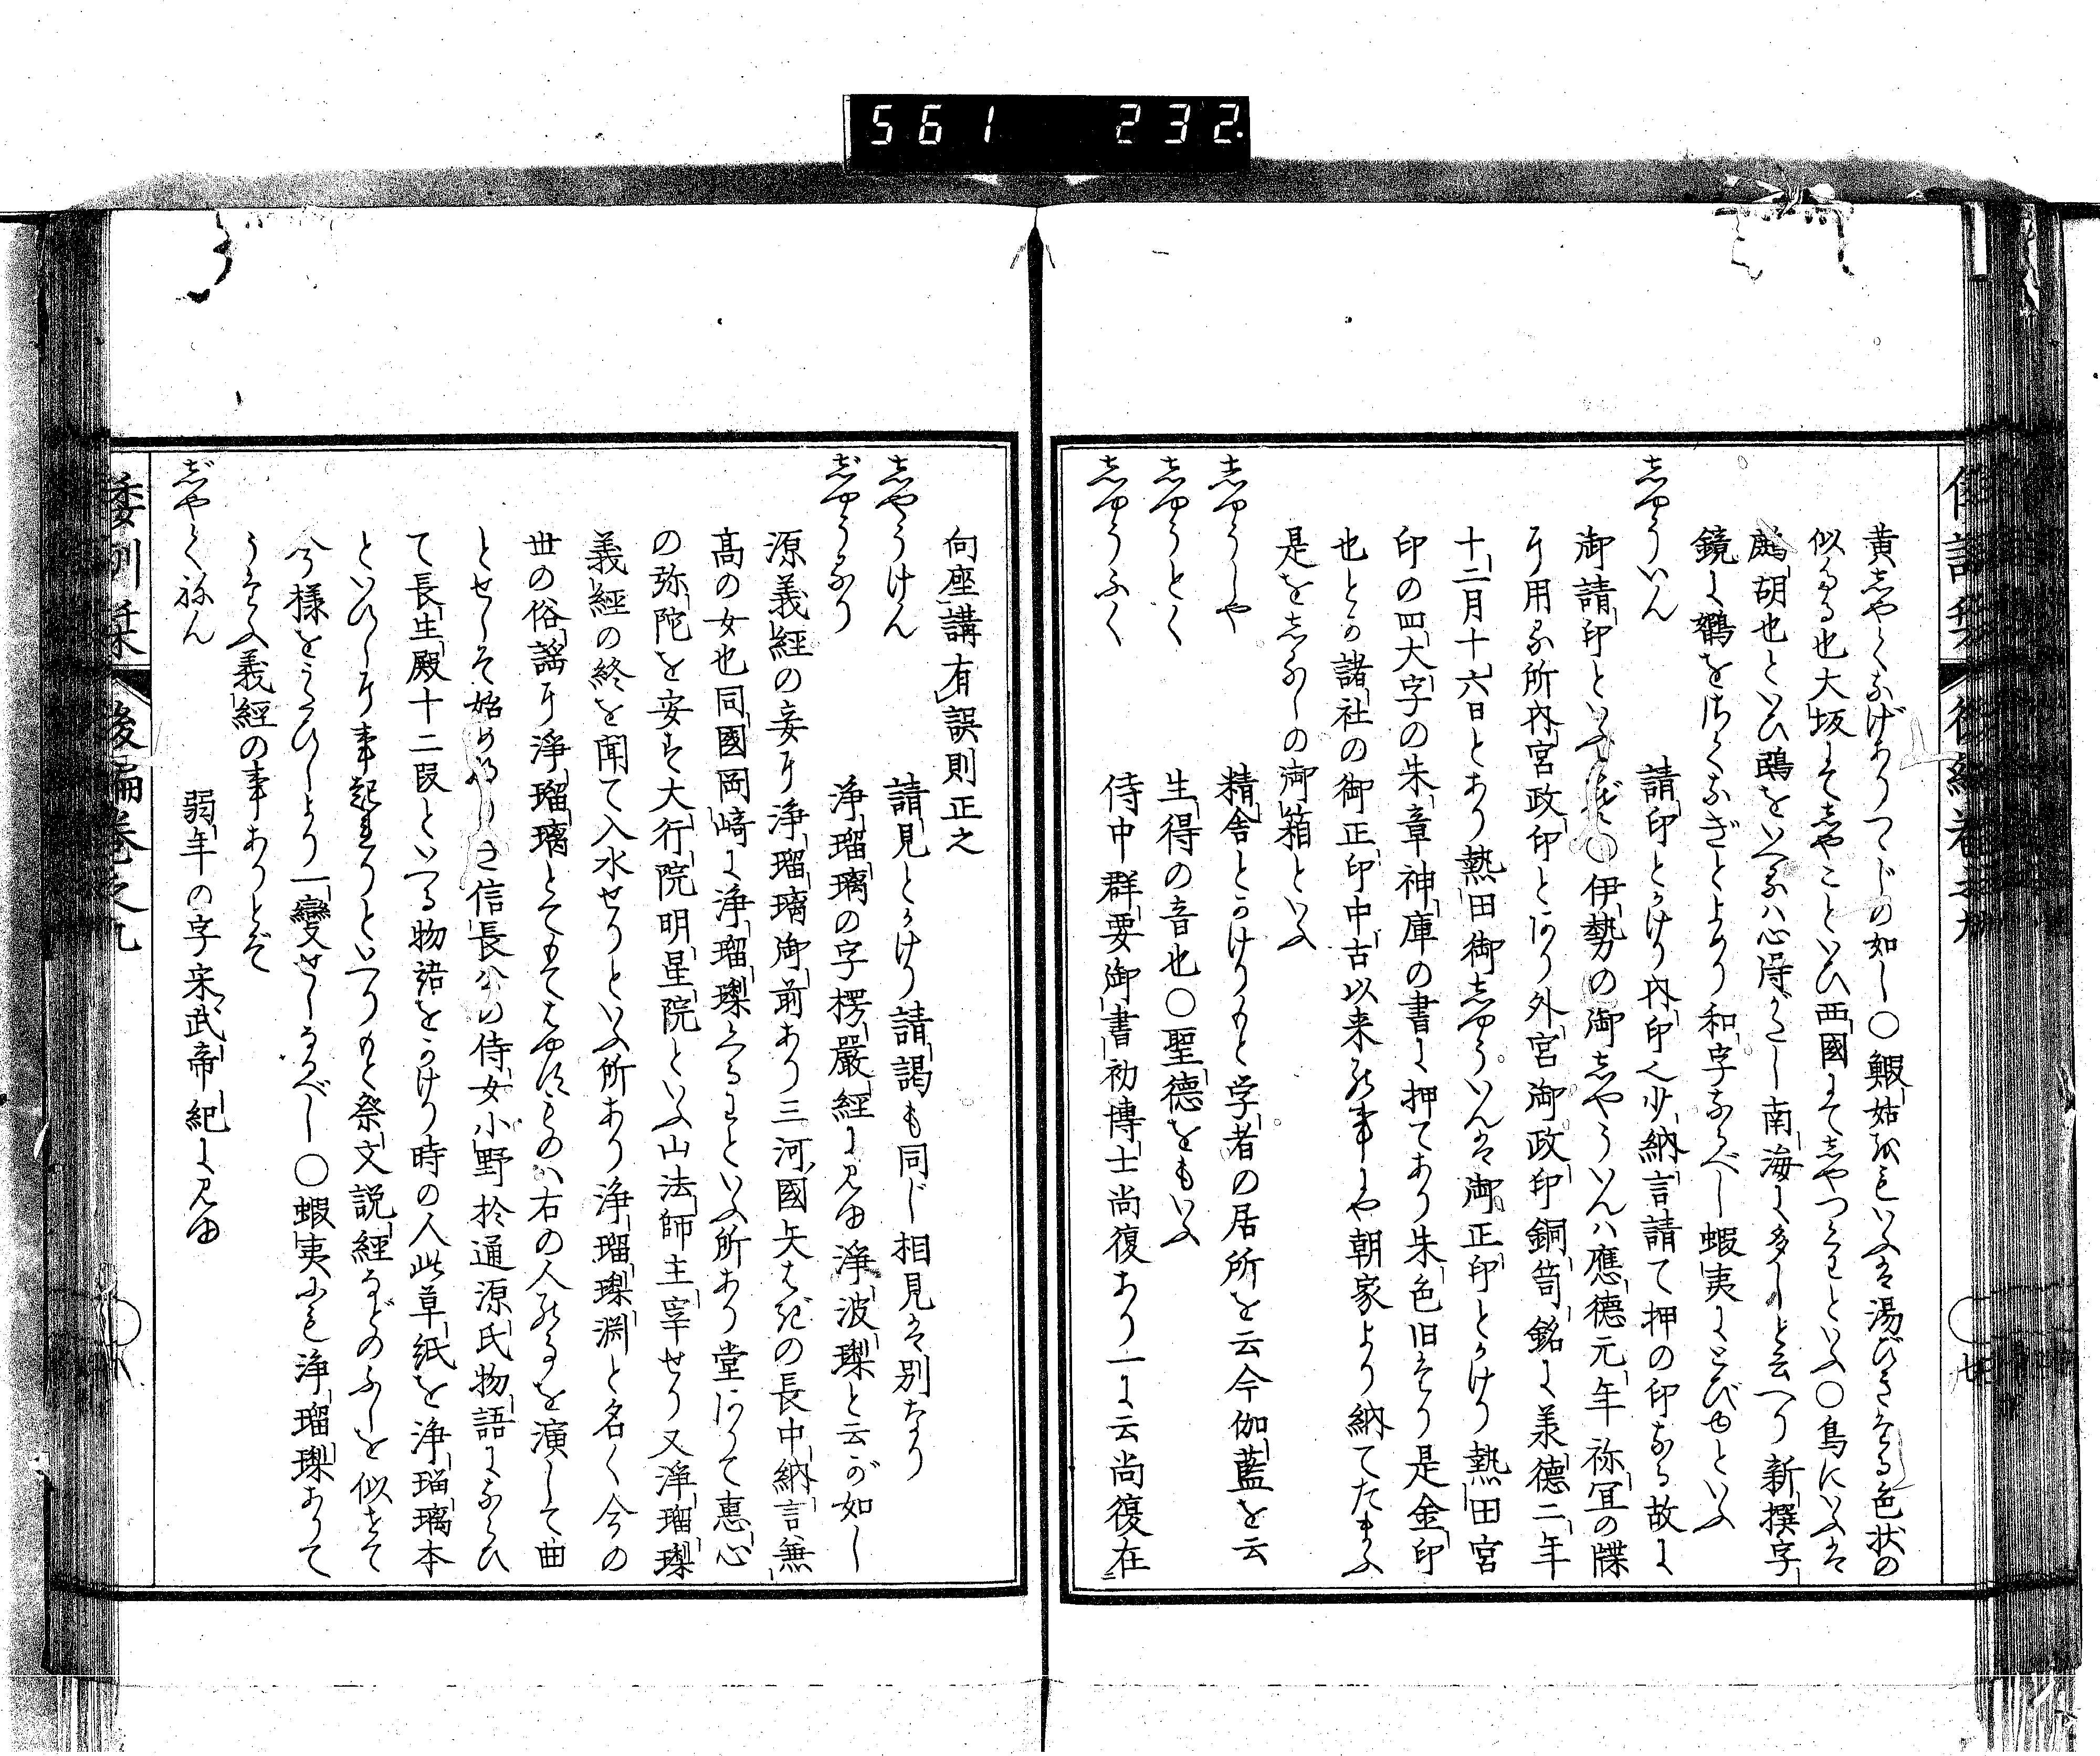 561 232
黄志やくなげありつゝじの如し〇鰕姑をもいふは湯びきたる色状の
似たる也大坂にて志やこといひ西國にて志やつぱといふ〇鳥にいふは
鵜胡也といひ鴎をいへるハ心得がたし南海に多しと云へり新撰字
鏡に鶴をはくなぎとよめり和字なるべし蝦夷にとびゆといふ
志やういん 請印とかけり内印を少納言請て押の印なる故に
御請印といふ〇伊勢の御志やういんハ應德元年祢宜の牒
に用る所内宮政印とあり外宮御政印銅笥銘に義德二年
十二月十六日とあり熱田御志やういんは御正印とかけり熱田宮
印の四大字の朱章神庫の書に押てあり朱色旧たり是金印
也とぞ諸社の御正印中古以来の事にや朝家より納てたまふ
是を志るしの御箱といふ
志やうじや 精舎とかけりもと学者の居所を云今伽藍を云
志やうとく 生得の音也〇聖德をもいふ
志やうふく 侍中群要御書初博士尚復あり一に云尚復在
向座講有誤則正之
志やうけん 請見とかけり請謁も同じ相見は別なり
志゛やうるり 浄瑠璃の字楞嚴經に見ゆ浄波瓈と云が如し
源義經の妾に浄瑠璃御前あり三河國矢はぎの長中納言兼
高の女也同國岡崎に浄瑠瓈くるわといふ所あり堂ありて惠心
の弥陀を安ず大行院明星院といふ山法師主宰せり又浄瑠瓈
義經の終を聞て入水せりといふ所あり浄瑠瓈渕と名く今の
世の俗謡に浄瑠璃とてもてはやすものハ右の人のうへを演じて曲
とせしぞ始めなりき信長公の侍女小野於通源氏物語にならひ
て長生殿十二段といへる物語をかけり時の人此草紙を浄瑠璃本
といひしに事起れりといへりもと祭文説經などのふしを似せて
今様をうたひしより一變せしなるべし〇蝦夷にも浄瑠瓈ありて
うたふ義經の事ありとぞ
志゛やくねん 弱年の字宋武帝紀に見ゆ
倭訓栞 後編巻之九